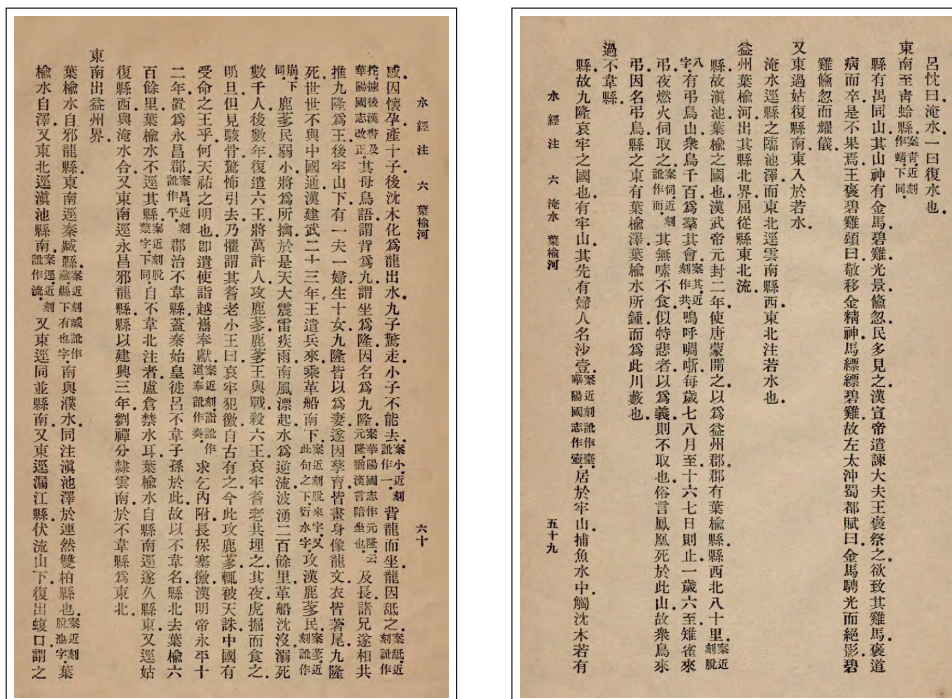 呂忱曰淹水一曰復水也
東南至青蛉縣案青近刻作蜻下同
縣有禺同山其山神有金馬碧雞光景儵忽民多見之漢宣帝遣諫大夫王褒祭之欲致其雞馬褒道
病而卒是不果焉王褒碧雞頌曰敬移金精神馬縹縹碧雞故左太沖蜀都賦曰金馬騁光而絕影碧
雞儵忽而耀儀
又東過姑復縣南東入於若水
淹水逕縣之臨池澤而東北逕雲南縣西東北注若水也
益州葉榆河出其縣北界屈從縣東北流
縣故滇池葉榆之國也漢武帝元封二年使唐蒙開之以為益州郡郡有葉榆縣縣西北八十里案近刻脫
八字有弔鳥山眾鳥千百為羣其會案其近刻作共嗚呼啁哳每歲七八月至十六七日則止一歲六至雉雀來
弔夜燃火伺取之案伺近刻訛作而其無嗉不食似特悲者以為義則不取也俗言鳳凰死於此山故眾鳥來
弔因名弔鳥縣之東有葉榆澤葉榆水所鍾而為此川藪也
過不韋縣
縣故九隆哀牢之國也有牢山其先有婦人名沙壹案近刻訛作臺華陽國志作壺居於牢山捕魚水中觸沈木若有
水經注 六 淹水 葉榆河 五十九
水經注 六 葉榆河 六十
感因懷孕產十子後沈木化為龍出水九子驚走小子不能去案小近刻訛作一背龍而坐龍因舐之案舐近刻訛作
抱據後漢書及華陽國志改正其母鳥語謂背為九謂坐為隆因名為九隆案華陽國志作元隆云元隆猶漢言陪坐也及長諸兄遂相共
推九隆為王後牢山下有一夫一婦生十女九隆皆以為妻遂因孳育皆畫身像龍文衣皆著尾九隆
死世世不與中國通漢建武二十三年王遣兵來乘革船南下案近刻脫來字又此句之下衍水字攻漢鹿茤民案茤近
刻訛作崩下同鹿茤民弱小將為所擒於是天大震雷疾雨南風漂起水為逆流波湧二百餘里革船沈沒溺死
數千人後數年復遣六王將萬許人攻鹿茤鹿茤王與戰殺六王哀牢耆老共埋之其夜虎掘而食之
明旦但見骸骨驚怖引去乃懼謂其耆老小王曰哀牢犯徼自古有之今此攻鹿茤輒被天誅中國有
受命之王乎何天祐之明也即遣使詣越巂奉獻案近刻詣訛作道奉訛作奏求乞內附長保塞徼漢明帝永平十
二年置為永昌郡案昌近刻訛作平郡治不韋縣蓋秦始皇徙呂不韋子孫於此故以不韋名縣北去葉榆六
百餘里葉榆水不逕其縣案近刻脫葉字下同自不韋北注者盧倉禁水耳葉榆水自縣南逕遂久縣東又逕姑
復縣西與淹水合又東南逕永昌邪龍縣縣以建興三年劉禪分隸雲南於不韋縣為東北
東南出益州界
葉榆水自邪龍縣東南逕秦臧縣案近刻臧訛作藏縣下有也字南與濮水同注滇池澤於連然雙柏縣也案近刻脫池字葉
榆水自澤又東北逕滇池縣南案逕近刻訛作流又東逕同並縣南又東逕漏江縣伏流山下復出蝮口謂之